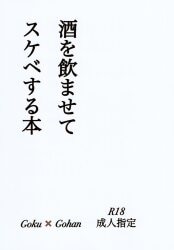 酒を飲ませて
スケベする本
R18
Goku × Gohan 成人指定